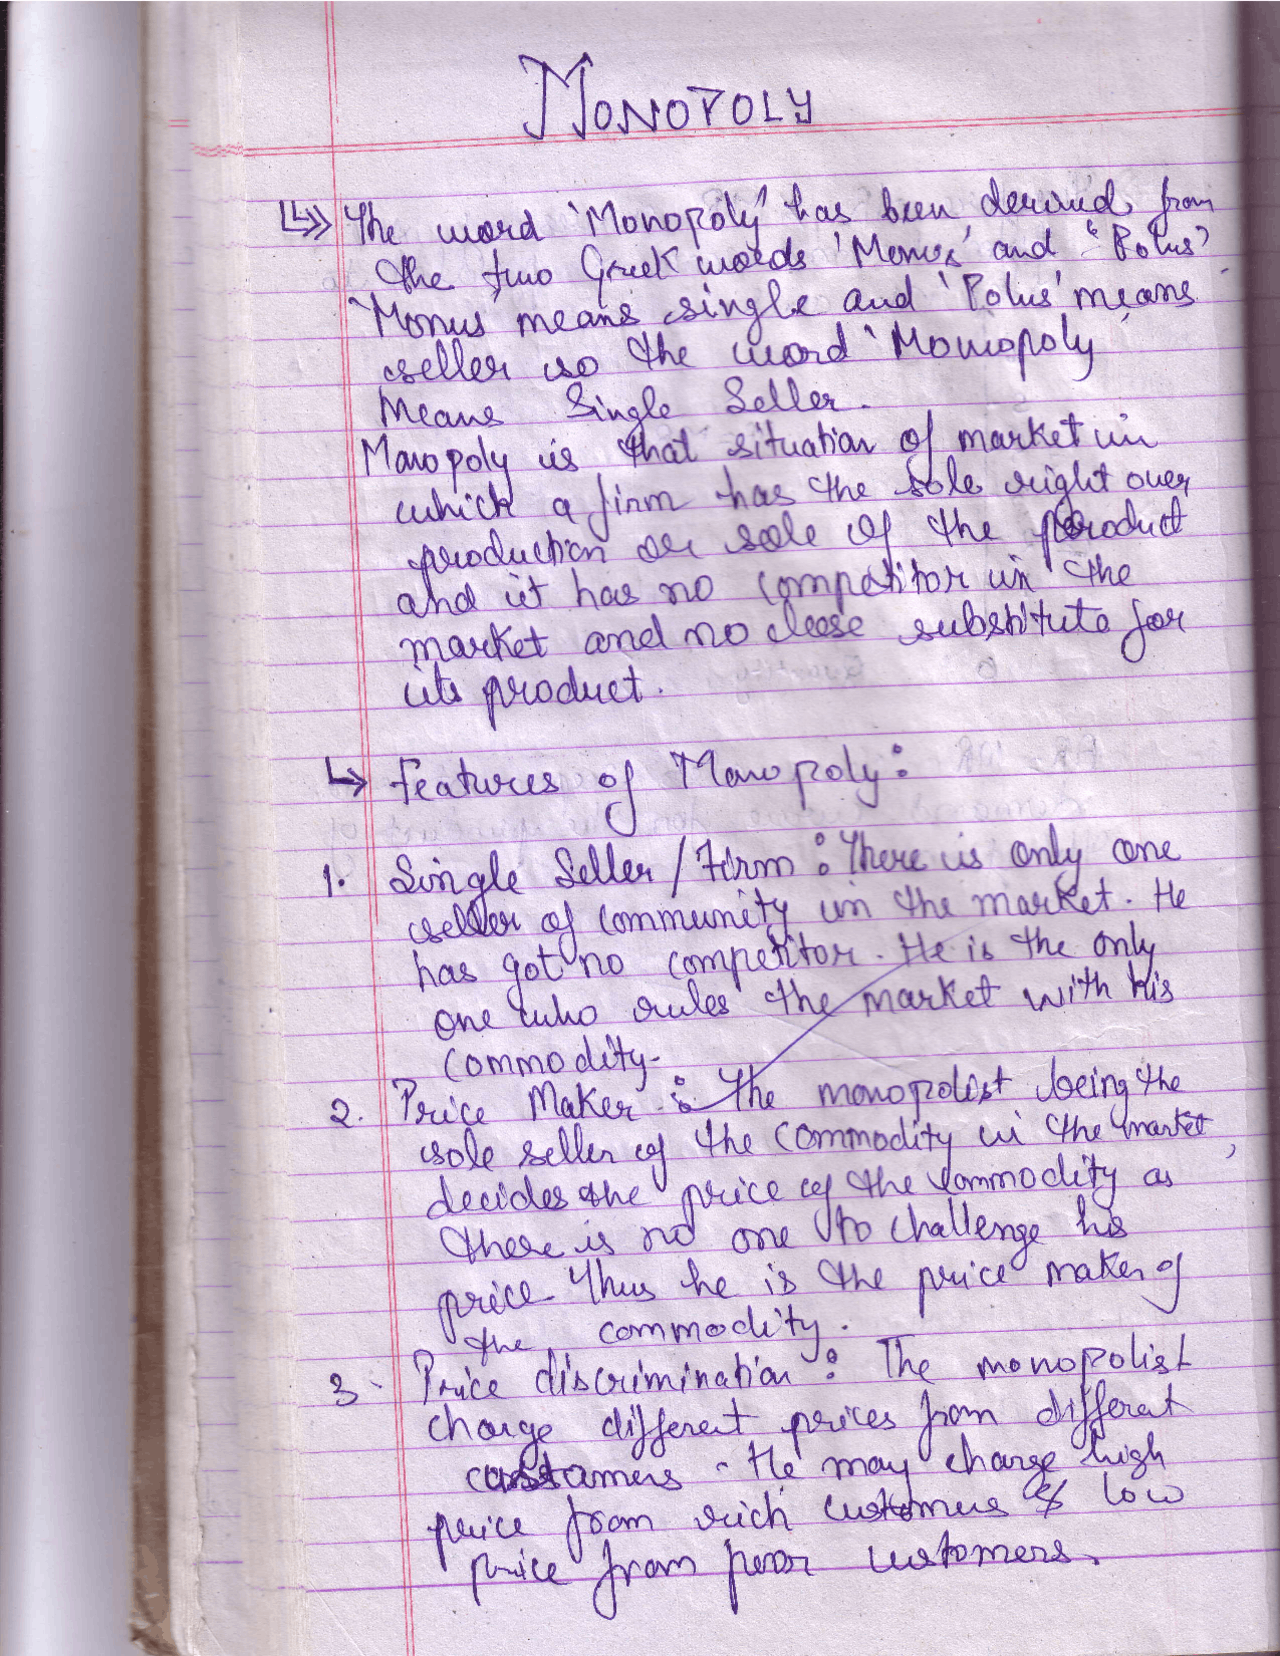 MONOPOLY
↳» The word 'Monopoly' has been derived from
the two Greek words 'Monus' and 'Polus'
'Monus means single and 'Polus' means
seller so the word 'Monopoly
Means Single Seller.
Monopoly is that situation of market in
which a firm has the sole right over
production or sale of the product
and it has no competitor in the
market and no close substitute for
its product.
↳ Features of Monopoly:
1. Single Seller / Firm : There is only one
seller of community in the market. He
has got no competitor. He is the only
one who rules the market with his
commodity.
2. Price Maker : The monopolist being the
sole seller of the commodity in the market,
decides the price of the commodity as
there is no one to challenge his
price. Thus he is the price maker of
the commodity.
3. Price discrimination : The monopolist
charge different prices from different
customers. He may charge high
price from rich customers & low
price from poor customers.